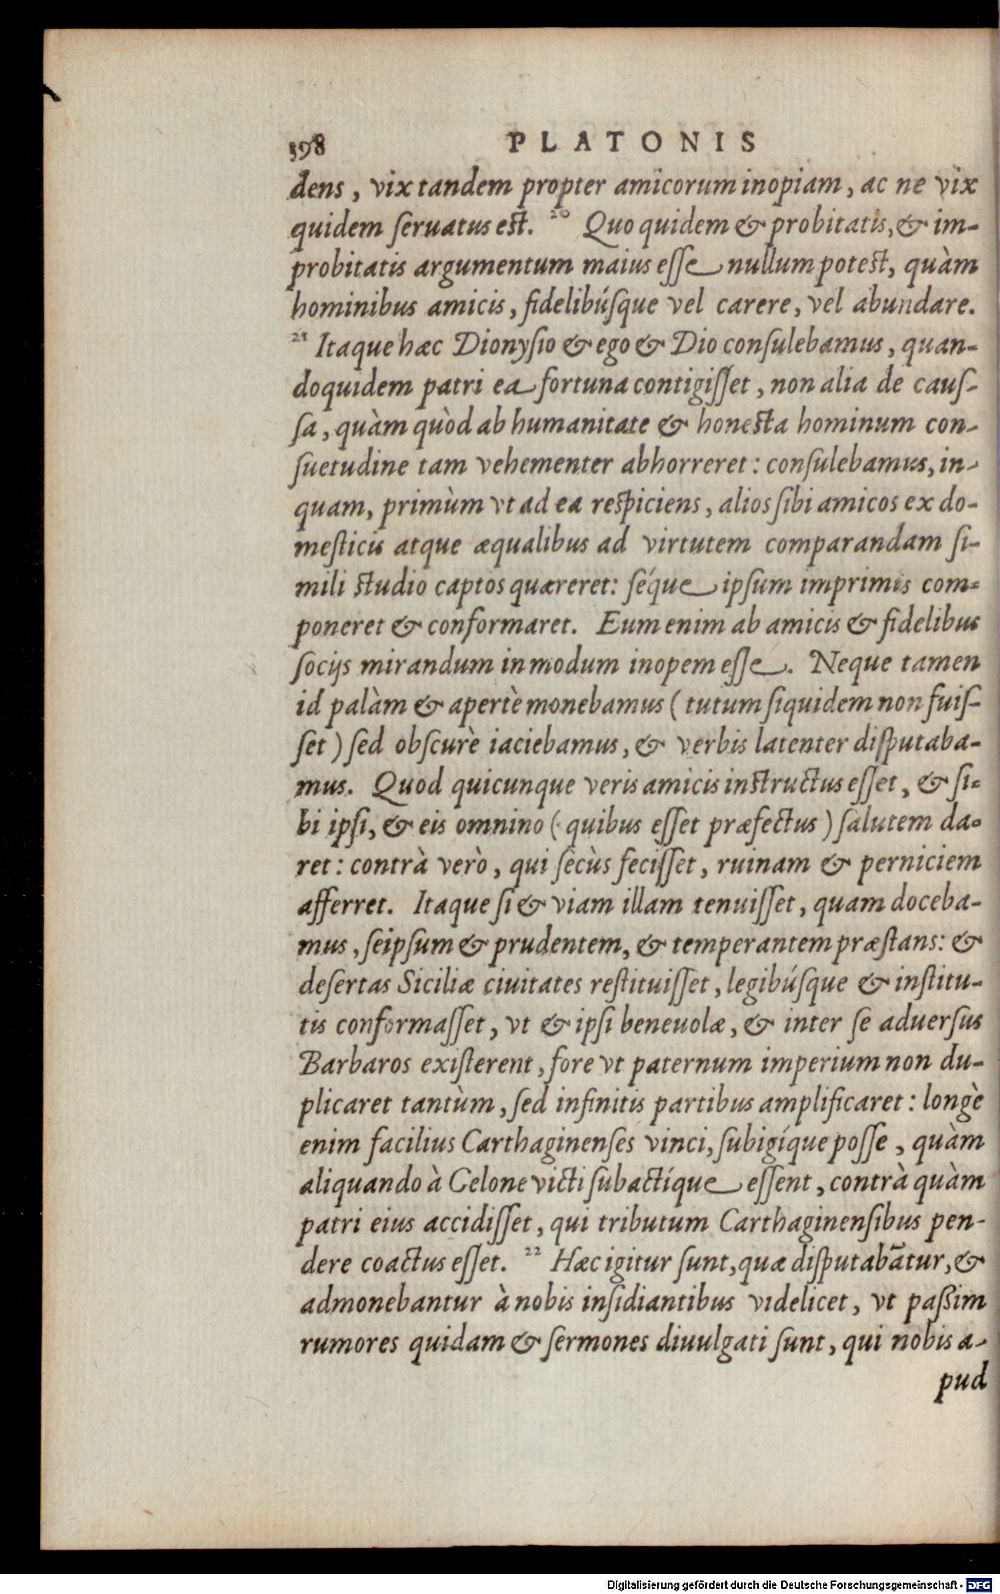 398 PLATONIS
dens, vix tandem propter amicorum inopiam, ac ne vix
quidem seruatus est. 20 Quo quidem & probitatis, & im-
probitatis argumentum maius esse nullum potest, quàm
hominibus amicis, fidelibúsque vel carere, vel abundare.
21 Itaque hæc Dionysio & ego & Dio consulebamus, quan-
doquidem patri ea fortuna contigisset, non alia de caus-
sa, quàm quòd ab humanitate & honesta hominum con-
suetudine tam vehementer abhorreret: consulebamus, in-
quam, primùm vt ad ea respiciens, alios sibi amicos ex do-
mesticis atque æqualibus ad virtutem comparandam si-
mili studio captos quæreret: séque ipsum imprimis com-
poneret & conformaret. Eum enim ab amicis & fidelibus
socijs mirandum in modum inopem esse. Neque tamen
id palàm & apertè monebamus (tutum siquidem non fuis-
set) sed obscurè iaciebamus, & verbis latenter disputaba-
mus. Quod quicunque veris amicis instructus esset, & si-
bi ipsi, & eis omnino (quibus esset præfectus) salutem da-
ret: contrà verò, qui secùs fecisset, ruinam & perniciem
afferret. Itaque si & viam illam tenuisset, quam doceba-
mus, seipsum & prudentem, & temperantem præstans: &
desertas Siciliæ ciuitates restituisset, legibúsque & institu-
tis conformasset, vt & ipsi beneuolæ, & inter se aduersus
Barbaros existerent, fore vt paternum imperium non du-
plicaret tantùm, sed infinitis partibus amplificaret: longè
enim facilius Carthaginenses vinci, subigíque posse, quàm
aliquando à Gelone victi subactíque essent, contrà quàm
patri eius accidisset, qui tributum Carthaginensibus pen-
dere coactus esset. 22 Hæc igitur sunt, quæ disputabãtur, &
admonebantur à nobis insidiantibus videlicet, vt paßim
rumores quidam & sermones diuulgati sunt, qui nobis a-
pud
Digitalisierung gefördert durch die Deutsche Forschungsgemeinschaft - DFG